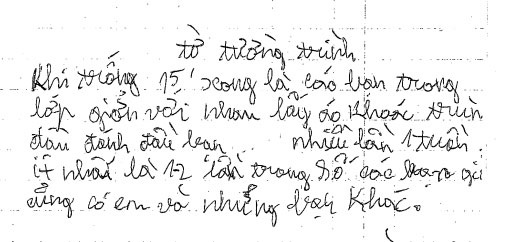 tờ tường trình
Khi trống 15' xong là các bạn trong
lớp giởn với nhau lấy áo khoác trùm
đầu đánh đầu bạn nhiều lần 1 tuần.
ít nhất là 1-2 lần trong số các bạn
cũng có em và những bạn Khác.